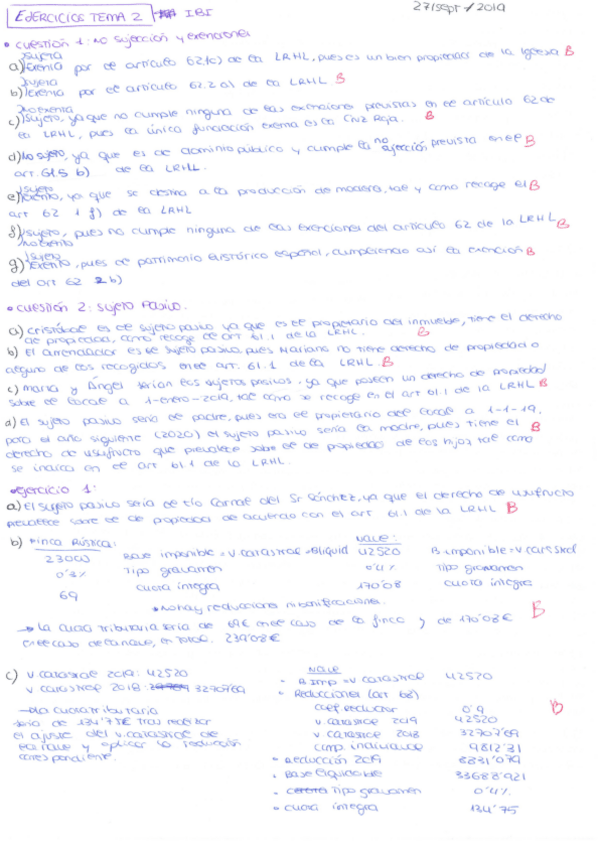 EJERCICIOS TEMA 2 IBI
27/sept/2019
• Cuestión 1: No sujección y exenciones
a) Sujeta exenta por el artículo 62.1c) de la LRHL, pues es un bien propiedad de la Iglesia B
b) Sujeta exenta por el artículo 62.2 a) de la LRHL. B
c) No exenta sujeto, ya que no cumple ninguna de las exenciones previstas en el artículo 62 de
la LRHL, pues la única fundación exenta es la Cruz Roja. B
d) No sujeto, ya que es de dominio público y cumple la no sujección prevista en el B
art. 61.5 b) de la LRHL.
e) Sujeto exento, ya que se destina a la producción de madera, tal y como recoge el B
art 62 1 f) de la LRHL
f) Sujeto, pues no cumple ninguna de las exenciones del artículo 62 de la LRHL B
no exento
g) Sujeto exento, pues es patrimonio histórico español, cumpliendo así la exención B
del art 62 2 b)
• Cuestión 2: Sujeto Pasivo.
a) Cristóbal es el sujeto pasivo ya que es el propietario del inmueble, tiene el derecho
de propiedad, como recoge el art 61.1 de la LRHL. B
b) El arrendador es el sujeto pasivo, pues Mariano no tiene derecho de propiedad o
alguno de los recogidos en el art. 61.1 de la LRHL. B
c) María y Ángel serían los sujetos pasivos, ya que poseen un derecho de propiedad
sobre el local a 1-enero-2019, tal como se recoge en el art 61.1 de la LRHL B
d) El sujeto pasivo sería el padre, pues era el propietario del local a 1-1-19,
para el año siguiente (2020) el sujeto pasivo sería la madre, pues tiene el B
derecho de usufructo que prevalece sobre el de propiedad de los hijos tal como
se indica en el art 61.1 de la LRHL.
• Ejercicio 1:
a) El sujeto pasivo sería el tío carnal del Sr Sánchez, ya que el derecho de usufructo
prevalece sobre el de propiedad de acuerdo con el art 61.1 de la LRHL B
b) Finca Rústica: Nave:
23000 Base imponible = V catastral = Bliquid 42520 B imponible = V catastral
0'3% Tipo gravamen 0'4% Tipo gravamen
69 Cuota íntegra 170'08 Cuota íntegra
• No hay reducciones ni bonificaciones.
→ La cuota tributaria sería de 69€ en el caso de la finca y de 170'08€ B
en el caso de la nave, en total. 239'08€
c) V catastral 2019: 42520
V catastral 2018: 32707'69
→ La cuota tributaria
sería de 134'75€ tras realizar
el ajuste del v.catastral de
la nave y aplicar la reducción
correspondiente.
Nave
• B Imp = V catastral 42520
• Reducciones (art 68)
Coef. reductor 0'9 B
V. catastral 2019 42520
V catastral 2018 32707'69
Comp. individual 9812'31
• Reducción 2019 8831'079
• Base liquidable 33688'921
• Tipo gravamen 0'4%
• Cuota íntegra 134'75